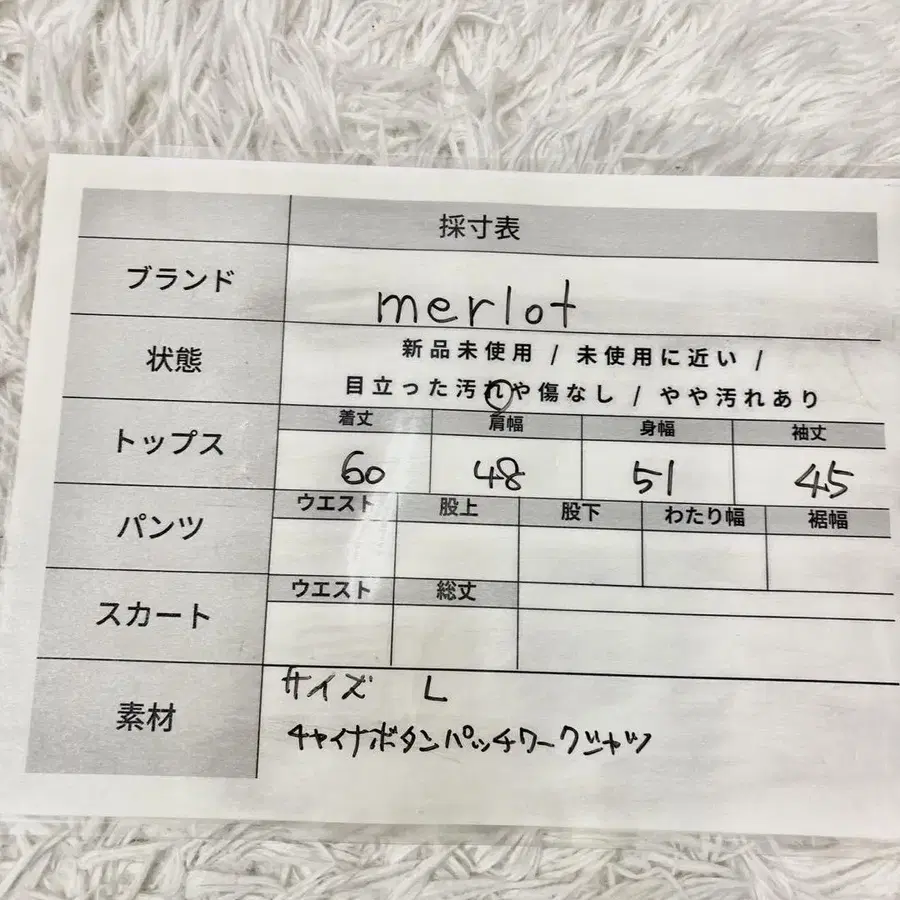 採寸表
ブランド
merlot
状態
新品未使用 / 未使用に近い /
目立った汚れや傷なし / やや汚れあり
トップス
着丈 肩幅 身幅 袖丈
60 48 51 45
パンツ
ウエスト 股上 股下 わたり幅 裾幅
スカート
ウエスト 総丈
素材
サイズ L
チャイナボタンパッチワークシャツ